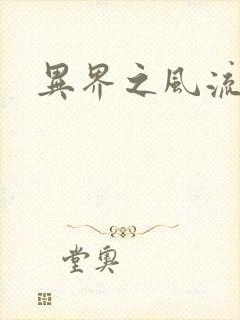 異界之風流
堂奧